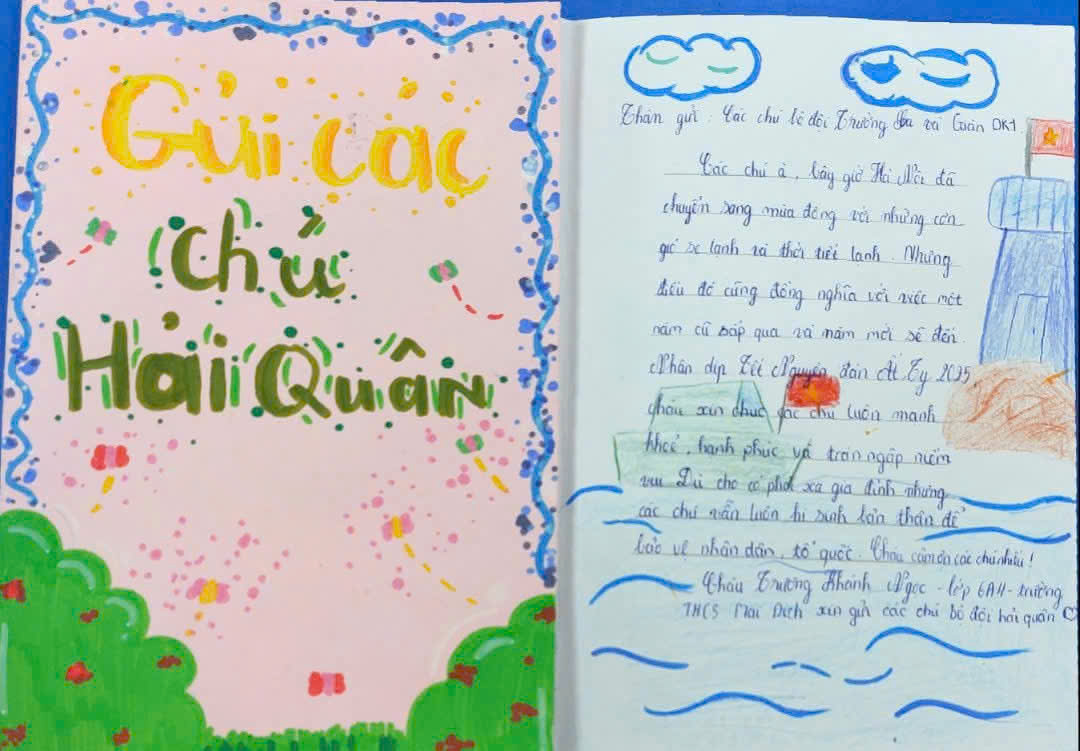 Gửi các
chú
Hải Quân
Thân gửi: Các chú bộ đội Trường Sa và Đoàn DK1.
Các chú à, bây giờ Hà Nội đã
chuyển sang mùa đông với những cơn
gió se lạnh và thời tiết lạnh. Nhưng
điều đó cũng đồng nghĩa với việc một
năm cũ sắp qua và năm mới sẽ đến.
Nhân dịp Tết Nguyên đán Ất Tỵ 2025,
cháu xin chúc các chú luôn mạnh
khoẻ, hạnh phúc và tràn ngập niềm
vui. Dù cho có phải xa gia đình nhưng
các chú vẫn luôn hi sinh bản thân để
bảo vệ nhân dân, tổ quốc. Cháu cảm ơn các chú nhiều!
Cháu Trương Khánh Ngọc - lớp 6A11 - trường
THCS Mai Dịch xin gửi các chú bộ đội hải quân